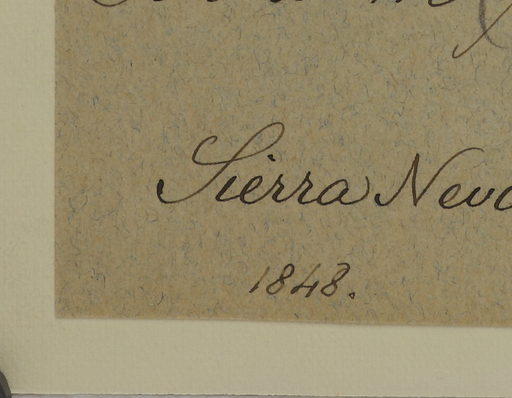 Sierra Neva
1848.